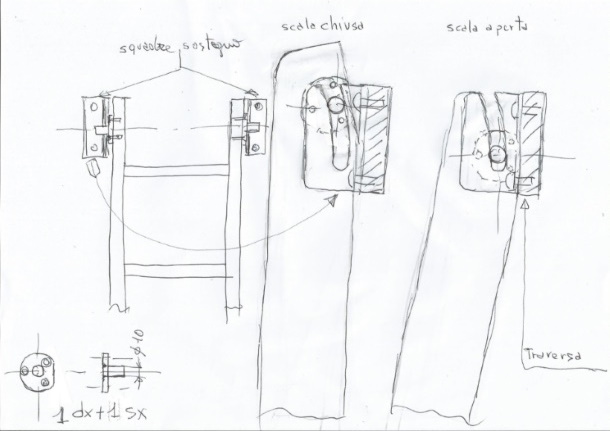 squadre sostegno
scala chiusa
scala aperta
Traversa
ø 10
1 dx + 1 sx